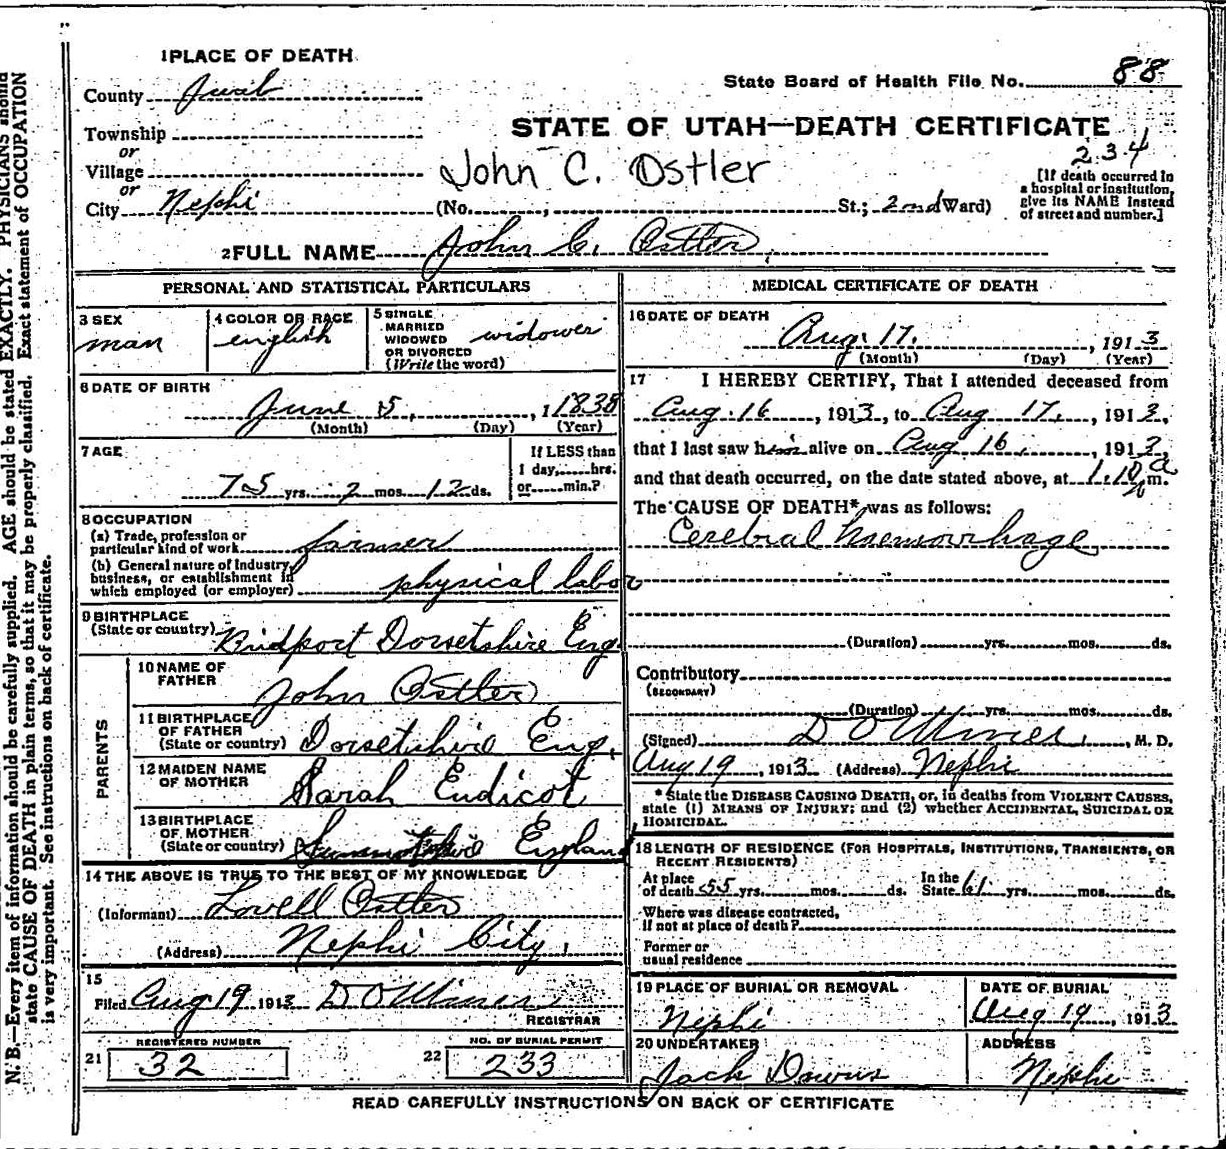 1 PLACE OF DEATH
State Board of Health File No. 88
County Juab
STATE OF UTAH—DEATH CERTIFICATE
Township
or
234
Village
John C. Ostler
or
[If death occurred in
a hospital or institution,
give its NAME instead
of street and number.]
City Nephi (No. , St.; 2nd Ward)
2 FULL NAME John C. Ostler
PERSONAL AND STATISTICAL PARTICULARS
3 SEX
man
4 COLOR OR RACE
english
5 SINGLE
MARRIED
WIDOWED
OR DIVORCED
(Write the word)
widower
6 DATE OF BIRTH
June 5, , 1 1838
(Month) (Day) (Year)
7 AGE
75 yrs. 2 mos. 12 ds.
If LESS than
1 day, hrs.
or min.?
8 OCCUPATION
(a) Trade, profession or
particular kind of work farmer
(b) General nature of Industry,
business, or establishment in
which employed (or employer) physical labor
9 BIRTHPLACE
(State or country) Bridport Dorsetshire Eng
PARENTS
10 NAME OF
FATHER
John Ostler
11 BIRTHPLACE
OF FATHER
(State or country) Dorsetshire Eng.
12 MAIDEN NAME
OF MOTHER
Sarah Endicot
13 BIRTHPLACE
OF MOTHER
(State or country) England
14 THE ABOVE IS TRUE TO THE BEST OF MY KNOWLEDGE
(Informant) Lovell Ostler
(Address) Nephi City,
15
Filed Aug 19 1913 D O Miner
REGISTRAR
REGISTERED NUMBER
21 32
NO. OF BURIAL PERMIT
22 233
MEDICAL CERTIFICATE OF DEATH
16 DATE OF DEATH
Aug. 17. , 1913
(Month) (Day) (Year)
17 I HEREBY CERTIFY, That I attended deceased from
Aug. 16 , 1913, to Aug 17, , 1913,
that I last saw him alive on Aug 16, , 1913,
and that death occurred, on the date stated above, at 1.10 a m.
The CAUSE OF DEATH* was as follows:
Cerebral haemorrhage
(Duration) yrs. mos. ds.
Contributory
(SECONDARY)
(Duration) yrs. mos. ds.
(Signed) D O Miner , M. D.
Aug 19 , 1913 (Address) Nephi
* State the DISEASE CAUSING DEATH, or, in deaths from VIOLENT CAUSES,
state (1) MEANS OF INJURY; and (2) whether ACCIDENTAL, SUICIDAL OR
HOMICIDAL.
18 LENGTH OF RESIDENCE (FOR HOSPITALS, INSTITUTIONS, TRANSIENTS, OR
RECENT RESIDENTS)
At place
of death 55 yrs. mos. ds.
In the
State 61 yrs. mos. ds.
Where was disease contracted,
if not at place of death?
Former or
usual residence
19 PLACE OF BURIAL OR REMOVAL
Nephi
DATE OF BURIAL
Aug 19 , 1913
20 UNDERTAKER
Jack
ADDRESS
Nephi
READ CAREFULLY INSTRUCTIONS ON BACK OF CERTIFICATE
N. B.—Every item of information should be carefully supplied. AGE should be stated EXACTLY. PHYSICIANS should
state CAUSE OF DEATH in plain terms, so that it may be properly classified. Exact statement of OCCUPATION
is very important. See instructions on back of certificate.